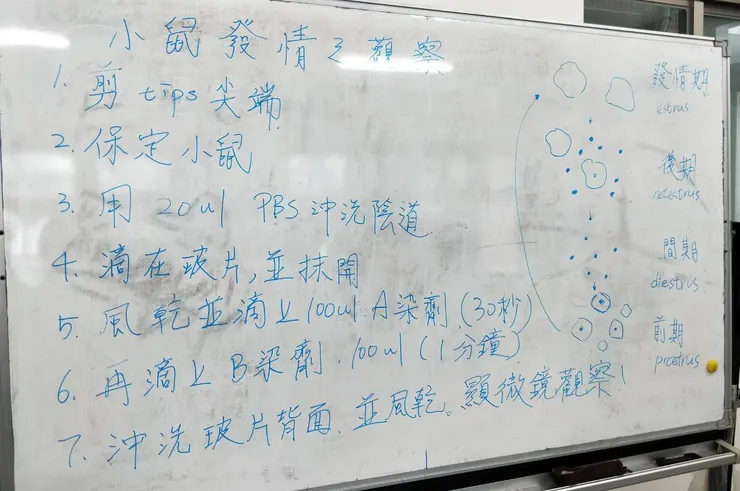 小鼠發情之觀察
1. 剪 tips 尖端
2. 保定小鼠
3. 用 20ul PBS 沖洗陰道
4. 滴在玻片,並抹開
5. 風乾並滴上100ul A染劑 (30秒)
6. 再滴上B染劑.100ul (1分鐘)
7. 沖洗玻片背面.並風乾。顯微鏡觀察!
發情期
estrus
後期
metestrus
間期
diestrus
前期
proestrus